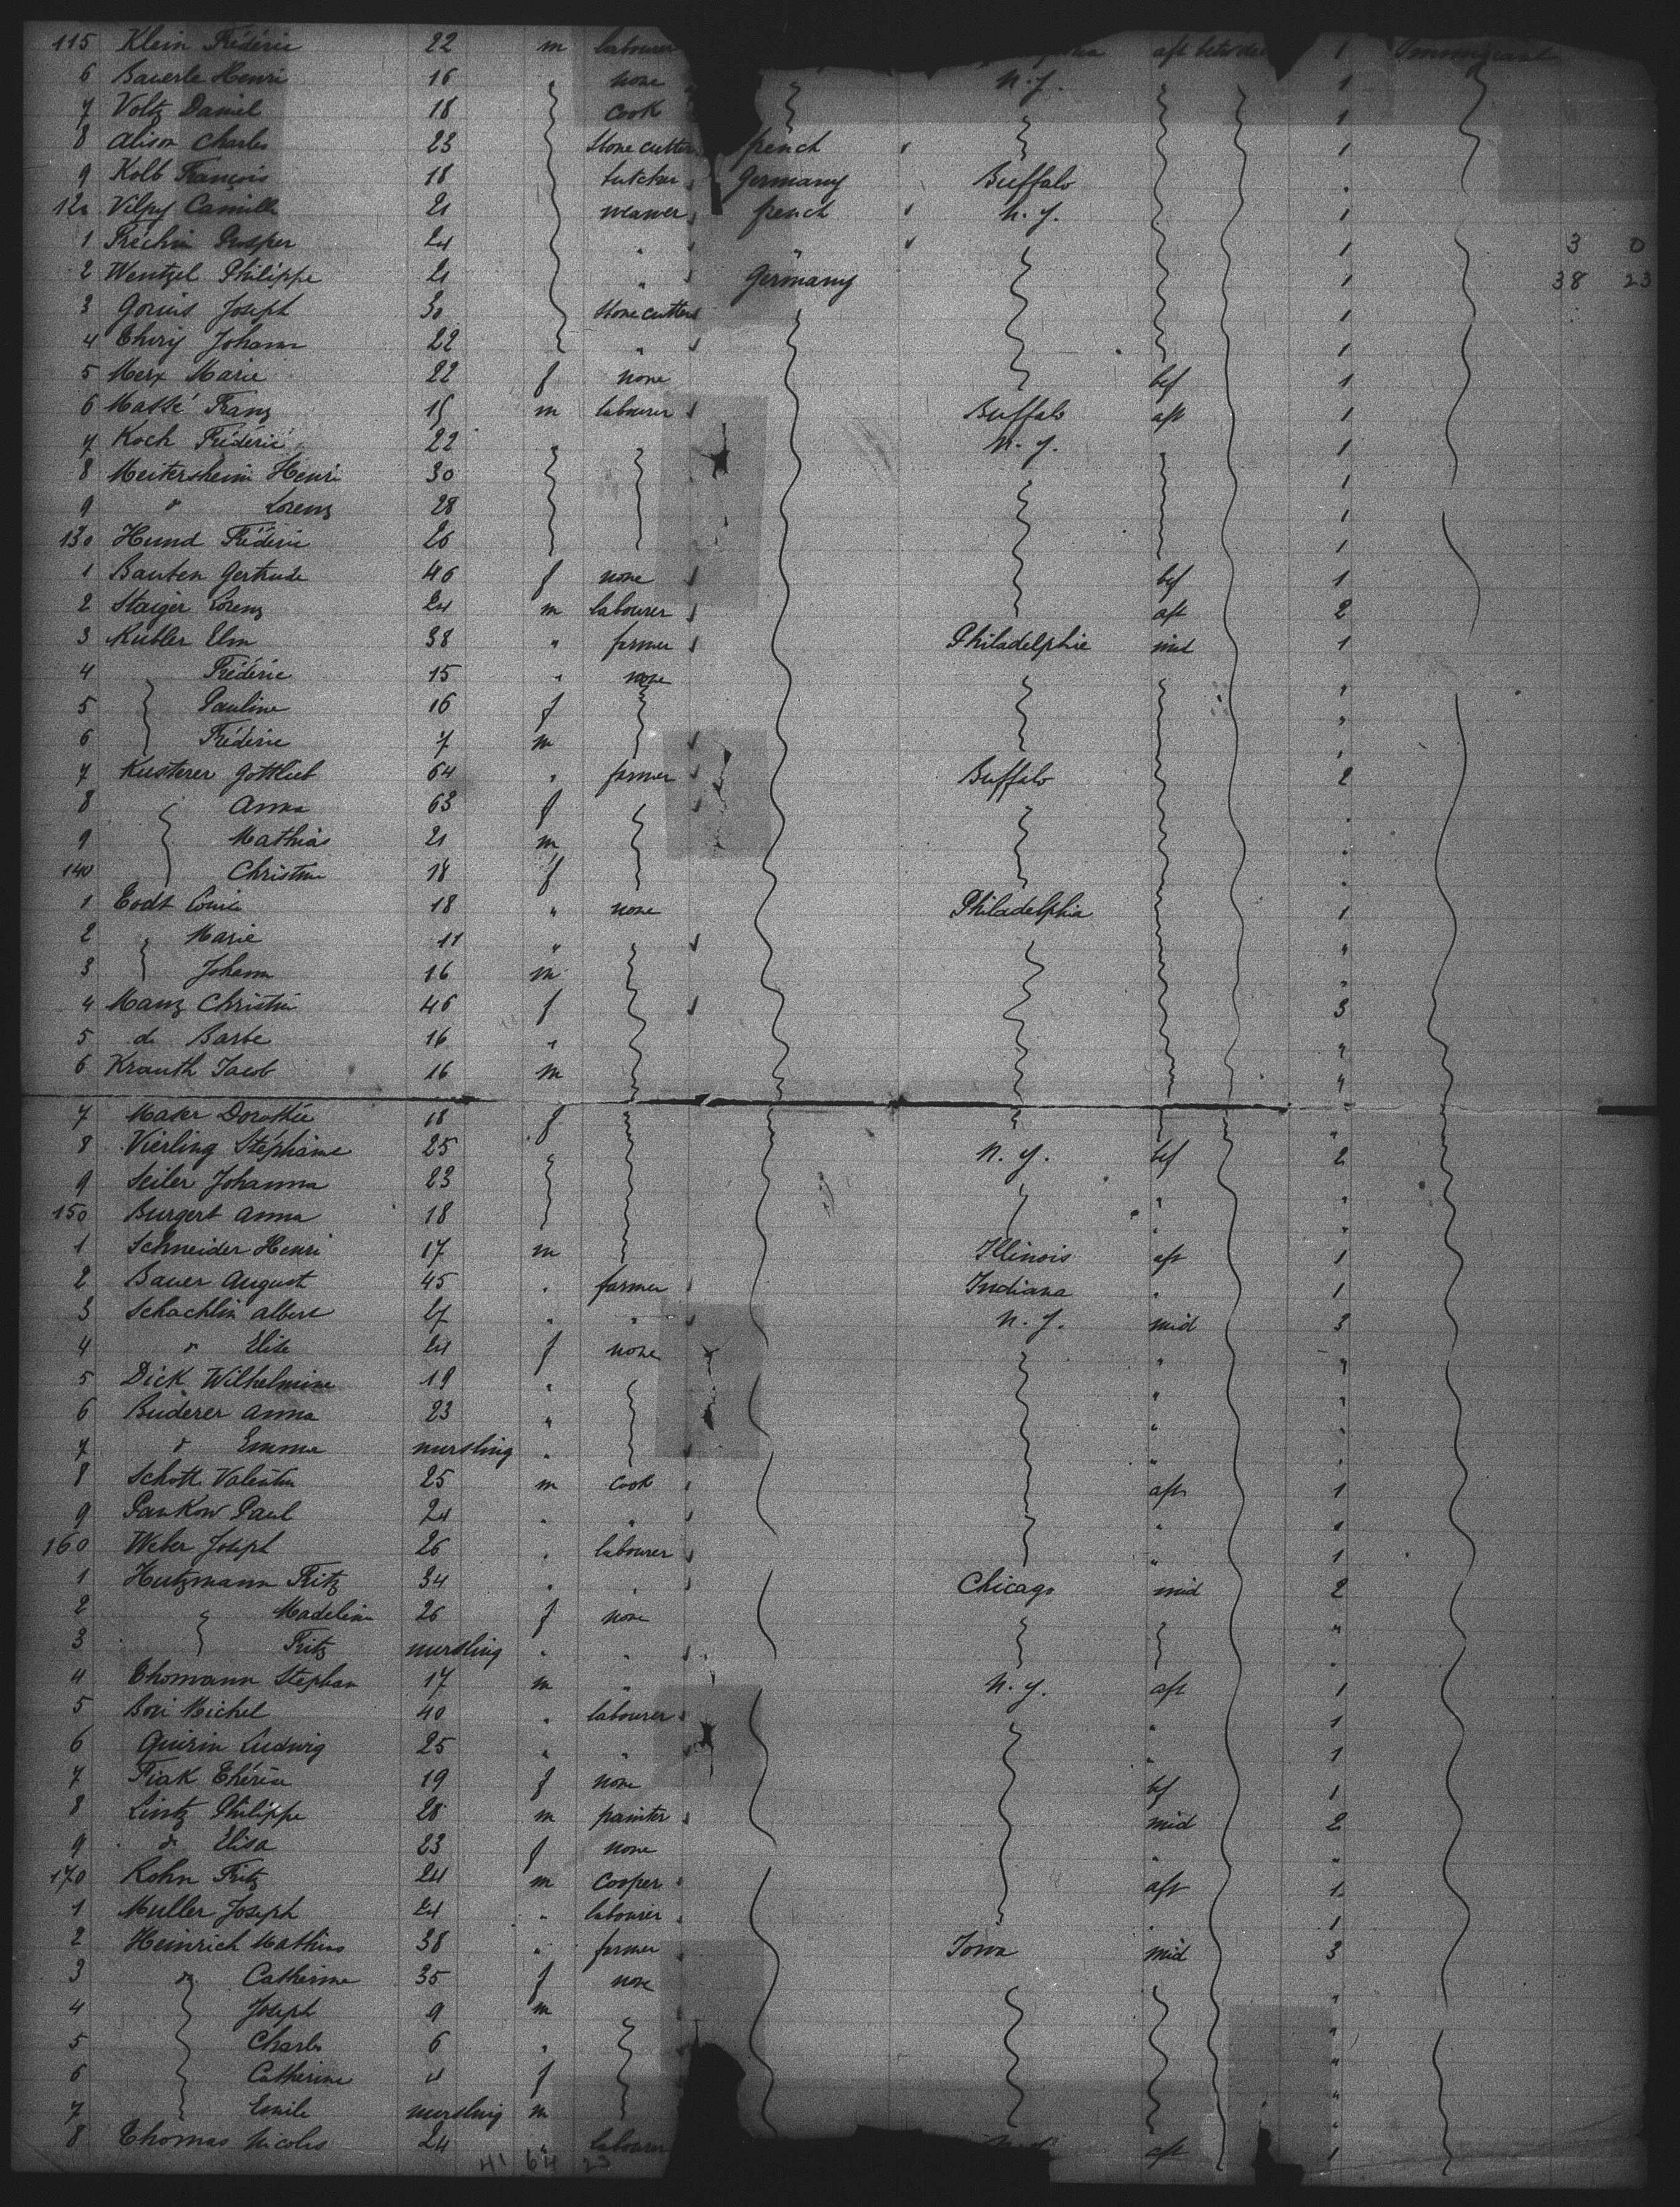 115 Klein Frédéric 22 m labourer aft betw deck 1 Immigrant
6 Bauerle Henri 16 none N.Y. 1
7 Voltz Daniel 18 cook 1
8 Alison Charles 23 Stone cutter french 1
9 Kolb François 18 butcher Germany Buffalo "
120 Vilpy Camille 21 weawer french N.Y. 1
1 Fréchin Prosper 24 " " 1 3 0
2 Wentzel Philippe 21 " Germany 1 38 23
3 Joseph 30 Stone cutters 1
4 Thiry Johann 22 " 1
5 Merx Marie 22 f none bef 1
6 Massé Franz 15 m labourer Buffalo aft 1
7 Koch Frédéric 22 " N.Y. 1
8 Meitersheim Henri 30 1
9 d° Lorenz 28 1
130 Hund Frédéric 26 1
1 Bauten Gertrude 46 f none bef 1
2 Staiger Lorenz 24 m labourer aft 2
3 Kubler Elm 38 " farmer Philadelphie mid 1
4 Frédéric 15 " none "
5 Pauline 16 f "
6 Frédéric 7 m "
7 Kusterer Gottlieb 64 " farmer Buffalo 2
8 Anna 63 f "
9 Mathias 21 m "
140 Christine 18 f "
1 Todt Louise 18 " none Philadelphia 1
2 Marie 11 " "
3 Johann 16 m "
4 Manz Christine 46 f 3
5 do Barbe 16 " "
6 Krauth Jacob 16 m "
7 Maser Dorothée 18 f "
8 Vierling Stéphanie 25 " N.Y. bef 2
9 Seiler Johanna 23 " "
150 Burgert Anna 18 " "
1 Schneider Henri 17 m Illinois aft 1
2 Bauer August 45 " farmer Indiana " 1
3 Schachlin Albert 27 " " N.Y. mid 3
4 d° Elise 24 f none " "
5 Dick Wilhelmine 19 " " "
6 Buderer Anna 23 " " "
7 d° Emma nursling " " "
8 Schott Valentin 25 m cook aft 1
9 Pankow Paul 24 " " " 1
160 Weber Joseph 26 " labourer " 1
1 Hutzmann Fritz 34 " " Chicago mid 2
2 Madeline 26 f none "
3 Fritz nursling " " "
4 Thomann Stephan 17 m " N.Y. aft 1
5 Michel 40 " labourer " 1
6 Quirin Ludwig 25 " " " 1
7 Fiak Thérèse 19 f none bef 1
8 Lintz Philippe 28 m painter mid 2
9 do Elisa 23 f none " "
170 Rohn Fritz 24 m Cooper aft 1
1 Muller Joseph 24 " labourer " 1
2 Heinrich Mathias 38 " farmer Iowa mid 3
3 do Catherine 35 f none "
4 Joseph 9 m "
5 Charles 6 " "
6 Catherine 4 f "
7 Emile nursling m "
8 Thomas Nicolas 24 " labourer aft 1
41 64 23